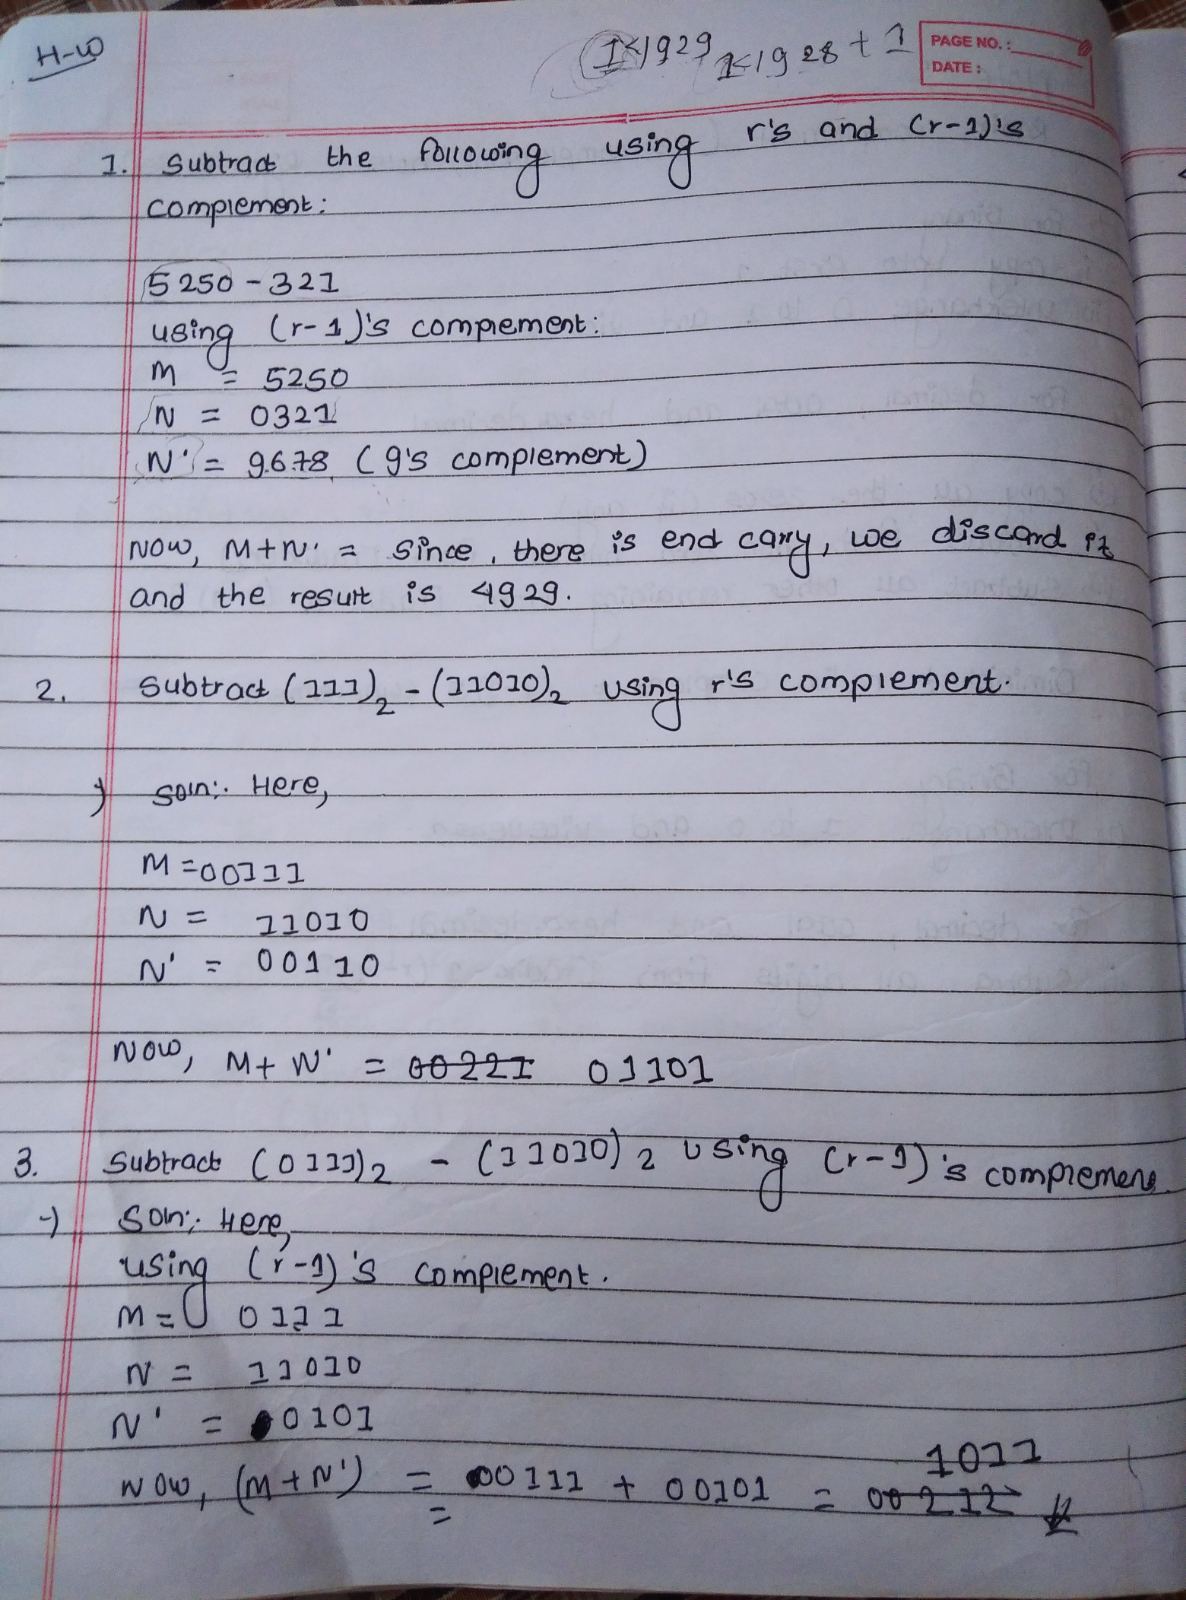 H-W
1<1929 1<1928 + 1
PAGE NO.:
DATE:
1. Subtract the following using r's and (r-1)'s
complement:
5250 - 321
using (r-1)'s complement:
M = 5250
N = 0321
N' = 9678 (9's complement)
Now, M+N' = Since, there is end carry, we discard it
and the result is 4929.
2. Subtract (111)2 - (11010)2 using r's complement.
Soln:. Here,
M = 00111
N = 11010
N' = 00110
Now, M+N' = 00221 01101
3. Subtract (0111)2 - (11010)2 using (r-1)'s complemen
→) Soln:. Here,
using (r-1)'s complement.
M = 0111
N = 11010
N' = 00101
1011
Now, (M+N') = 00111 + 00101 = 00212
=